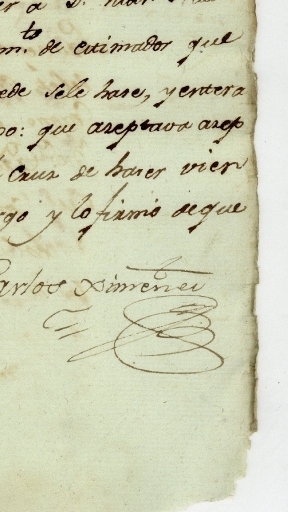 m.to de estimados que
ede sele hase, y entera
do: que aseptava asep
Cruz de haser vien
rgo y lo firmó de que
arlos Ximenez